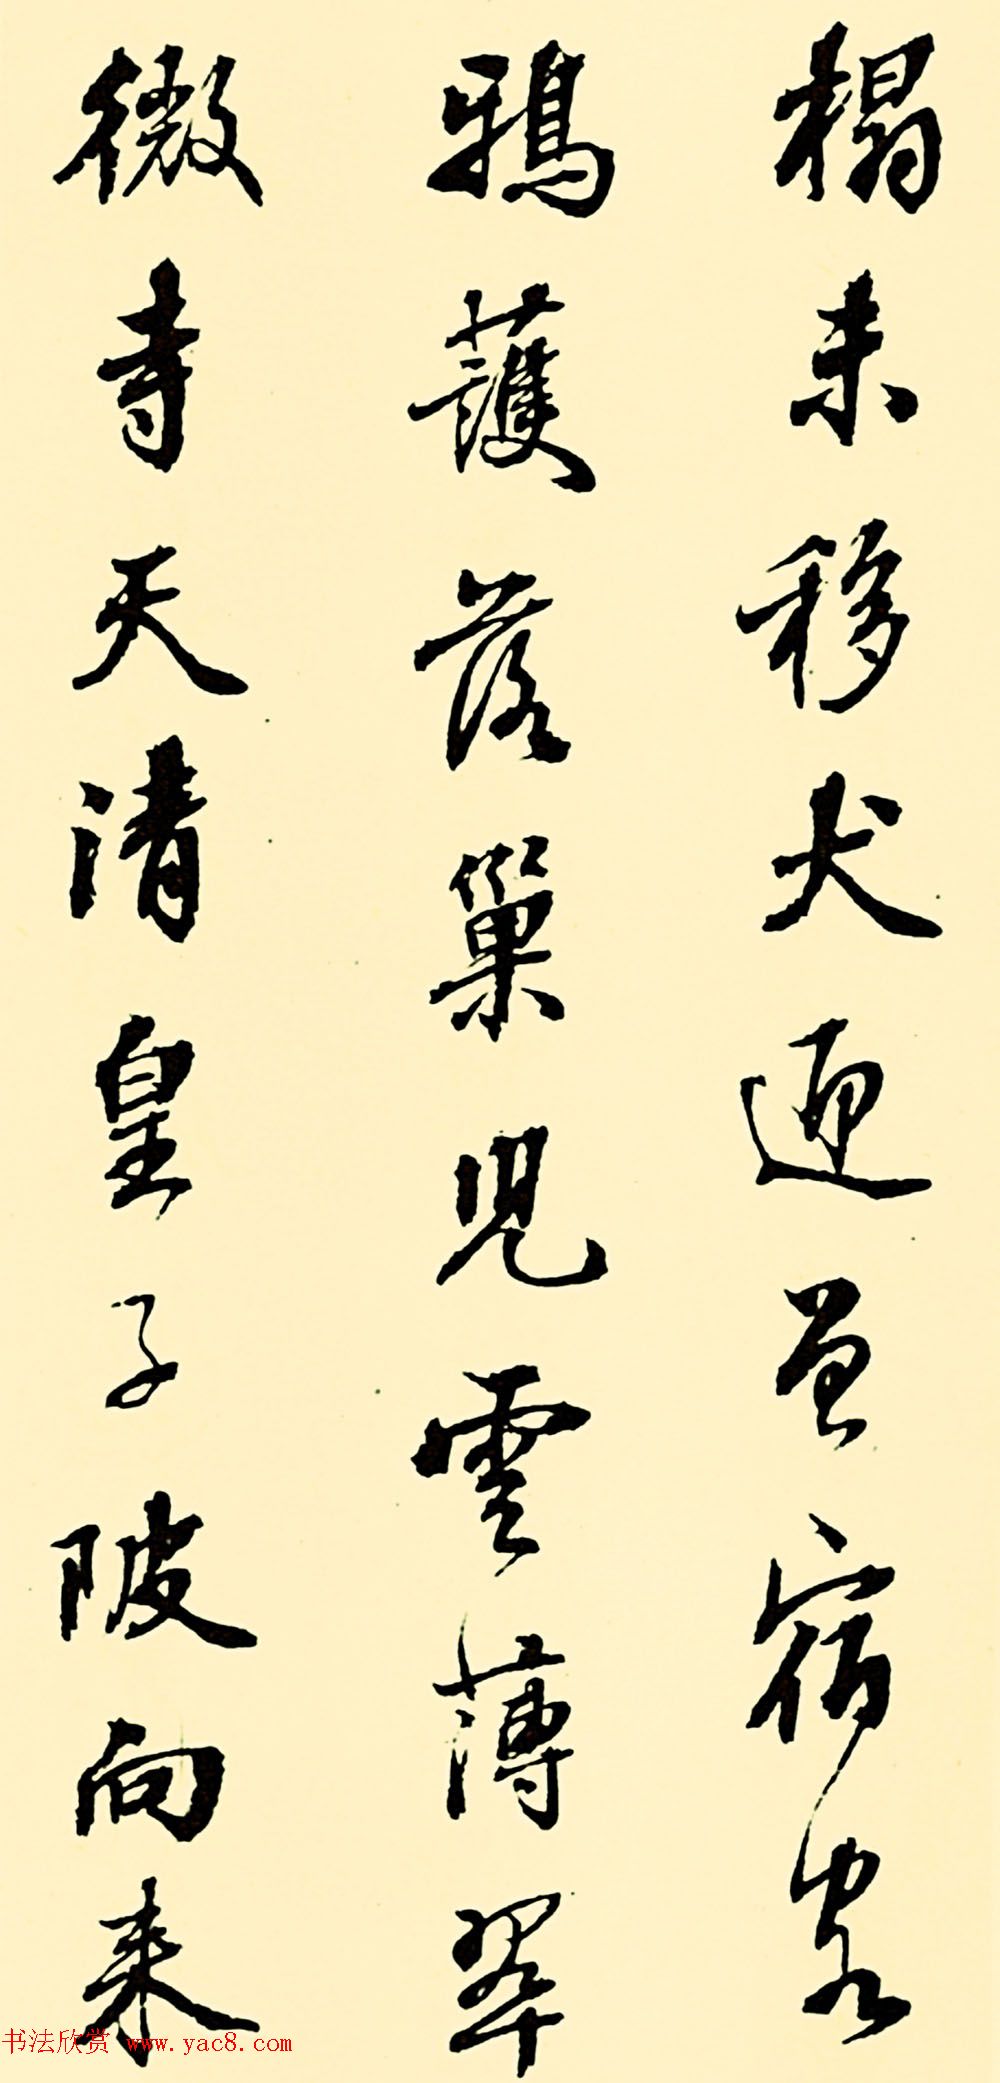 榻未移犬迎曾宿客
鴉護落巢兒雲薄翠
微寺天清皇子陂向來
书法欣赏 www.yac8.com